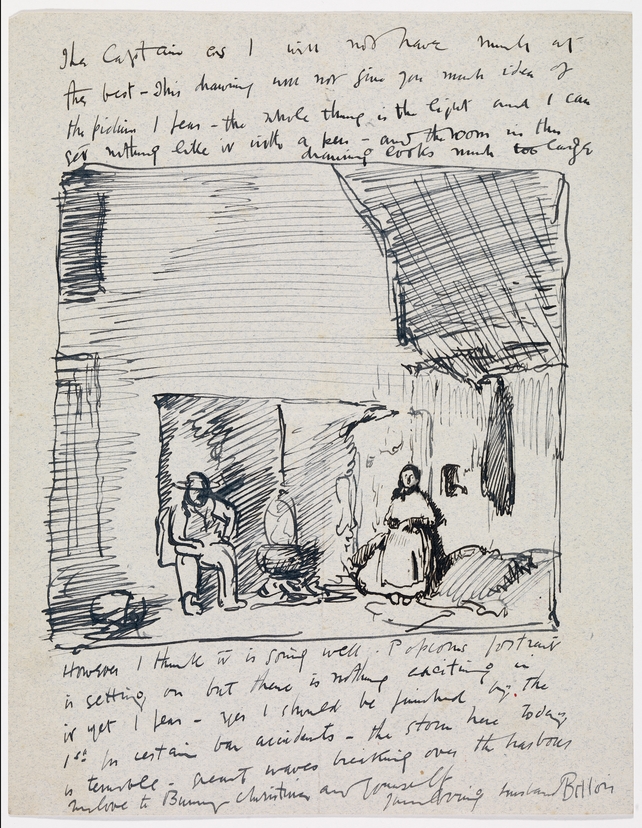 the Captain as I will not have much at
the best - This drawing will not give you much idea of
the picture I fear - the whole thing is the light and I can
get nothing like it with a pen - and the room in this
drawing looks much too large
However I think it is going well. portrait
is getting on but there is nothing exciting in
it yet I fear - yes I should be finished by the
1st for certain bar accidents - the storm here today
is terrible - great waves breaking over the harbour
love to Bunny Christian and yourself
your loving husband